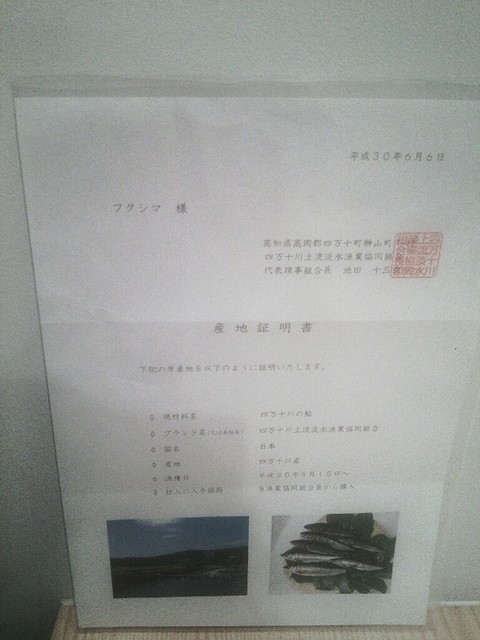 平成30年6月6日
フクシマ 様
高知県高岡郡四万十町榊山町
四万十川上流淡水漁業協同組
代表理事組合長 池田 十三
産地証明書
下記の原産地を以下のように証明いたします。
◇ 原材料名 四万十川の鮎
◇ ブランド名 四万十川上流淡水漁業協同組合
◇ 国名 日本
◇ 産地 四万十川産
◇ 漁獲日 平成30年6月1日~
◇ 仕入の入手経路 当漁業協同組合員から購入